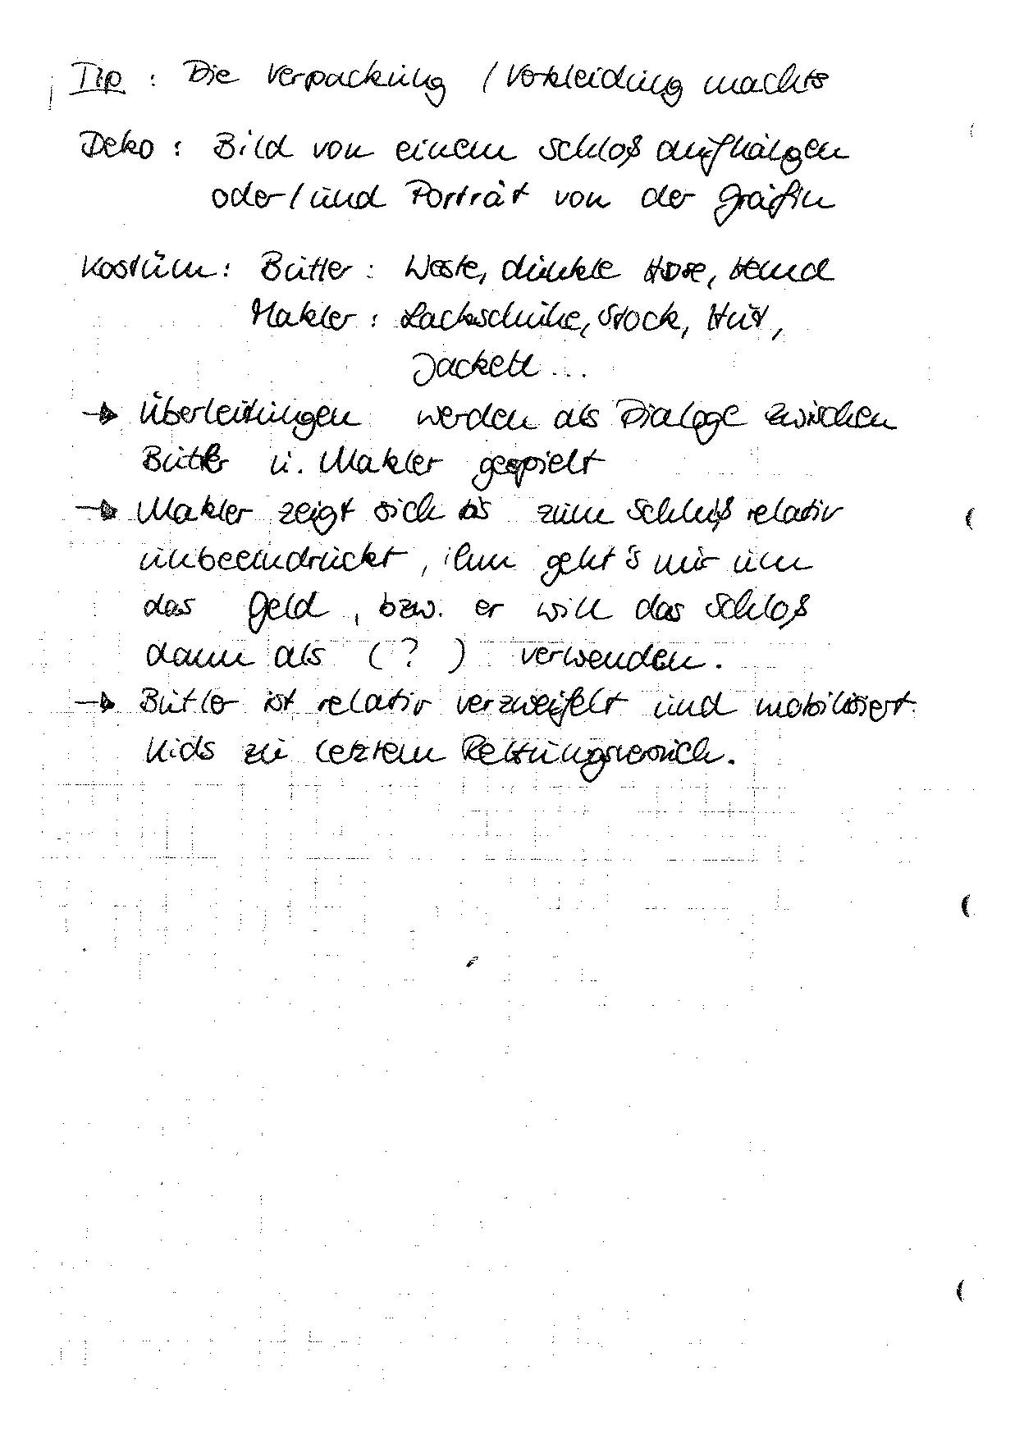 Tip : Die Verpackung / Verkleidung macht's
Deko : Bild von einem Schloß aufhängen
oder / und Porträt von der Gräfin
Kostüm : Butler : Weste, dunkle Hose, Hemd
Makler : Lackschuhe, Stock, Hut,
Jackett ...
→ Überleitungen werden als Dialoge zwischen
Butler u. Makler gespielt
→ Makler zeigt sich bis zum Schluß relativ
unbeeindruckt, ihm geht's nur um
das Geld, bzw. er will das Schloß
dann als ( ? ) verwenden.
→ Butler ist relativ verzweifelt und mobilisiert
Kids zu letztem Rettungsversuch.